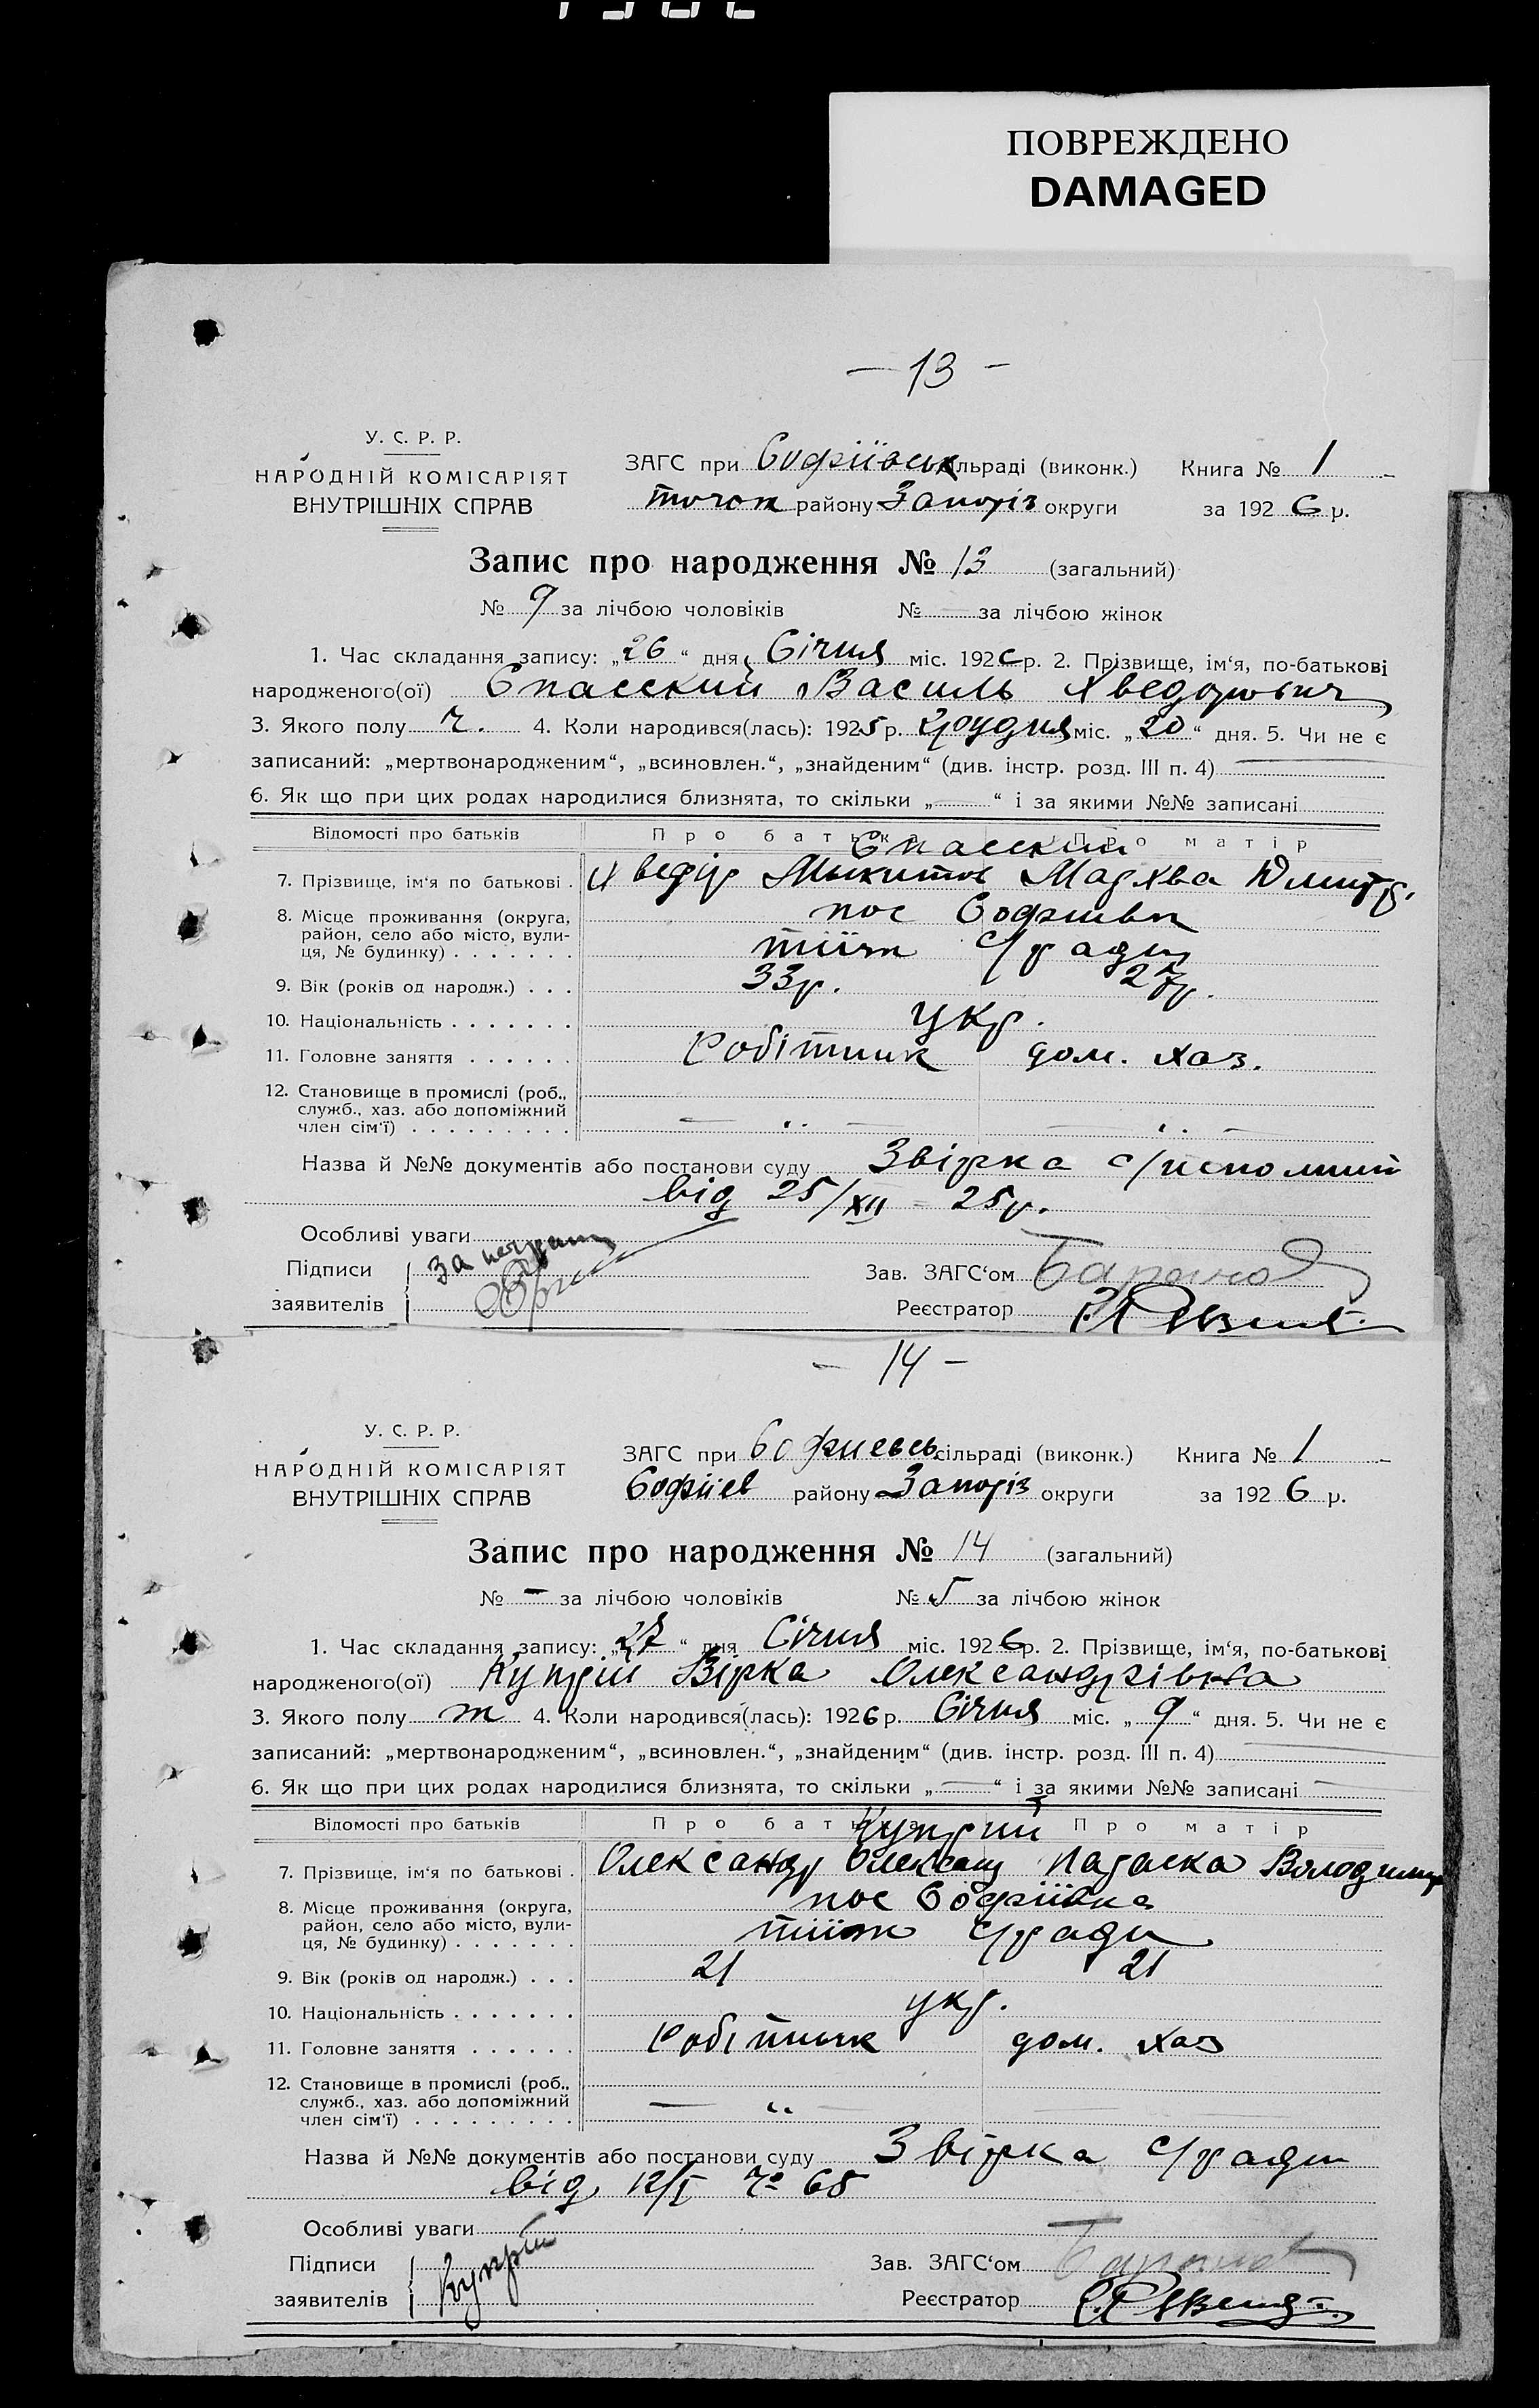 ПОВРЕЖДЕНО
DAMAGED
— 13 —
У. С. Р. Р.
НАРОДНІЙ КОМІСАРІЯТ
ВНУТРІШНІХ СПРАВ
ЗАГС при Софіївськ сільраді (виконк.) Книга № 1
району Запоріз округи за 1926 р.
Запис про народження № 13 (загальний)
№ 9 за лічбою чоловіків № — за лічбою жінок
1. Час складання запису: „26“ дня Січня міс. 1926 р. 2. Прізвище, ім‘я, по-батькові
народженого(ої) Спасский Василь Хведорович
3. Якого полу ч. 4. Коли народився(лась): 1925 р. Грудня міс. „20“ дня. 5. Чи не є
записаний: „мертвонародженим“, „всиновлен.“, „знайденим“ (див. інстр. розд. III п. 4) —
6. Як що при цих родах народилися близнята, то скільки „—“ і за якими №№ записані
Відомості про батьків Про батька Про матір
Спасский
7. Прізвище, ім‘я по батькові . Хведір Микитов Мархва Дмитр.
8. Місце проживання (округа, район, село або місто, вулиця, № будинку) . . . . . . . пос Софиивк
с/ради
9. Вік (років од народж.) . . . 33р. 27р.
10. Національність . . . . . . . укр.
11. Головне заняття . . . . . . Робітник дом. хаз.
12. Становище в промислі (роб., служб., хаз. або допоміжний член сім‘ї) . . . . . . . . . — „ — — „ —
Назва й №№ документів або постанови суду Звірка
від 25/XII - 25р.
Особливі уваги
Підписи
заявителів
За
Зав. ЗАГС‘ом Баранов
Реєстратор
— 14 —
У. С. Р. Р.
НАРОДНІЙ КОМІСАРІЯТ
ВНУТРІШНІХ СПРАВ
ЗАГС при Софиевсь сільраді (виконк.) Книга № 1
Софіїев району Запоріз округи за 1926 р.
Запис про народження № 14 (загальний)
№ — за лічбою чоловіків № 5 за лічбою жінок
1. Час складання запису: „27“ дня Січня міс. 1926 р. 2. Прізвище, ім‘я, по-батькові
народженого(ої) Купрій Вірка Олександрівна
3. Якого полу ж 4. Коли народився(лась): 1926 р. Січня міс. „9“ дня. 5. Чи не є
записаний: „мертвонародженим“, „всиновлен.“, „знайденим“ (див. інстр. розд. III п. 4) —
6. Як що при цих родах народилися близнята, то скільки „—“ і за якими №№ записані —
Відомості про батьків Про батька Про матір
Куприй
7. Прізвище, ім‘я по батькові . Олександр Олександ Параска Володимир
8. Місце проживання (округа, район, село або місто, вулиця, № будинку) . . . . . . . пос Софіївка
с/ради
9. Вік (років од народж.) . . . 21 21
10. Національність . . . . . . . укр.
11. Головне заняття . . . . . . Робітник дом. хаз
12. Становище в промислі (роб., служб., хаз. або допоміжний член сім‘ї) . . . . . . . . . — „ —
Назва й №№ документів або постанови суду Звірка с/ради
від 12/I № 65
Особливі уваги
Підписи
заявителів
Купрій
Зав. ЗАГС‘ом Баранов
Реєстратор